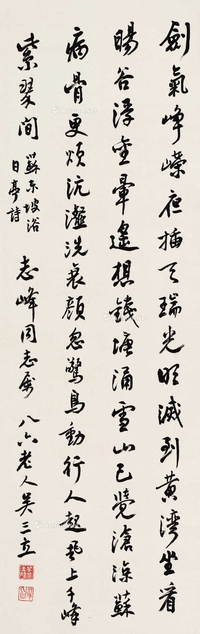 劍氣崢嶸夜插天瑞光明滅到黃灣坐看
暘谷浮金暈遙想錢塘涌雪山已覺滄涼蘇
病骨更煩沆瀣洗衰顏忽驚鳥動行人起飛上千峰
紫翠間 蘇東坡浴
日亭詩
志峰同志屬 八六老人吳三立